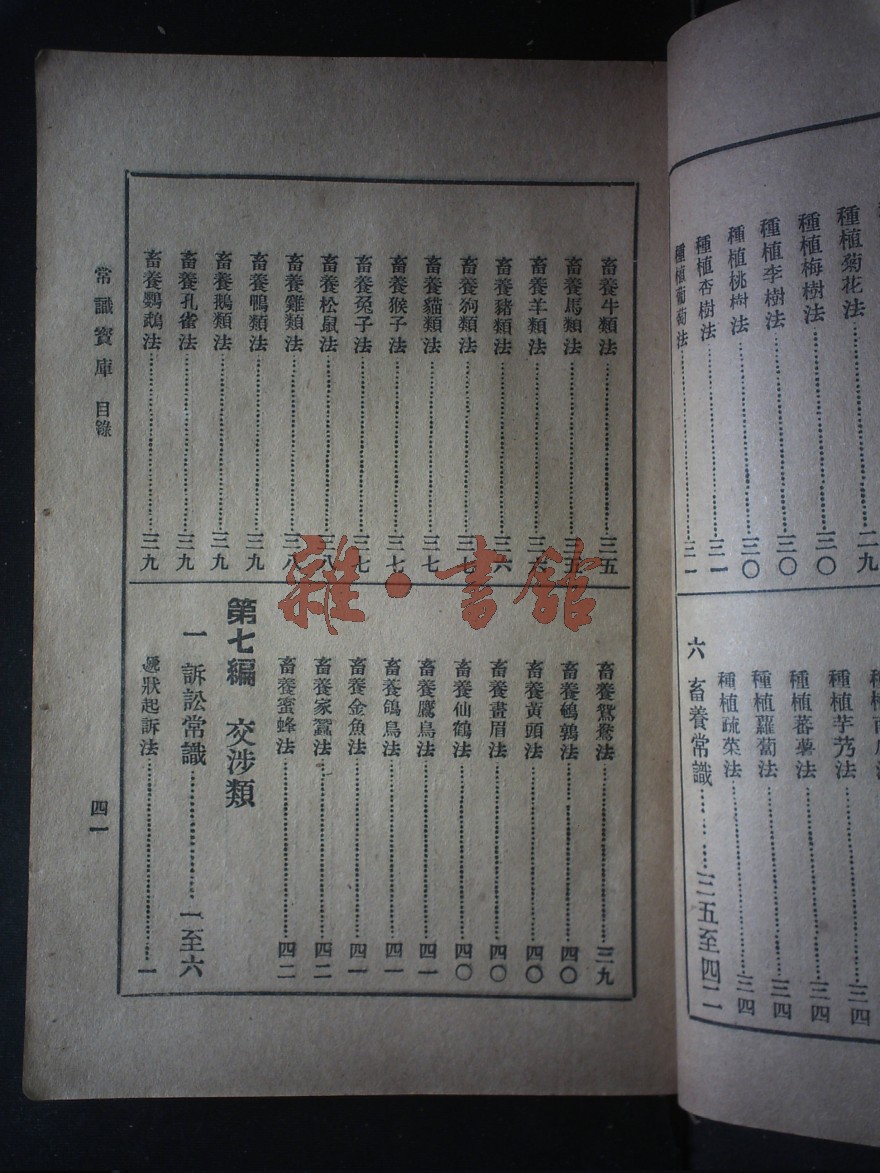 種植菊花法……二九
種植梅樹法……三〇
種植李樹法……三〇
種植桃樹法……三〇
種植杏樹法……三一
種植葡萄法……三一
種植芋艿法……三四
種植蕃薯法……三四
種植蘿蔔法……三四
種植蔬菜法……三四
六 畜養常識……三五至四二
畜養牛類法……三五
畜養馬類法……三五
畜養羊類法……三六
畜養豬類法……三六
畜養狗類法……三七
畜養貓類法……三七
畜養猴子法……三七
畜養兔子法……三七
畜養松鼠法……三八
畜養雞類法……三八
畜養鴨類法……三九
畜養鵝類法……三九
畜養孔雀法……三九
畜養鸚鵡法……三九
畜養鴛鴦法……三九
畜養鵪鶉法……四〇
畜養黃頭法……四〇
畜養畫眉法……四〇
畜養仙鶴法……四〇
畜養鷹鳥法……四一
畜養鴿鳥法……四一
畜養金魚法……四一
畜養家蠶法……四二
畜養蜜蜂法……四二
第七編 交涉類
一 訴訟常識……一至六
遞狀起訴法……一
常識寶庫 目錄
四一
雜·書館